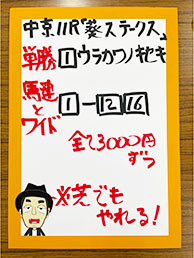 中京11R「葵ステークス」
単勝 1 ウラカワノキセキ
馬連とワイド 1-12 16
全て3000円
ずつ
※芝でも
やれる！